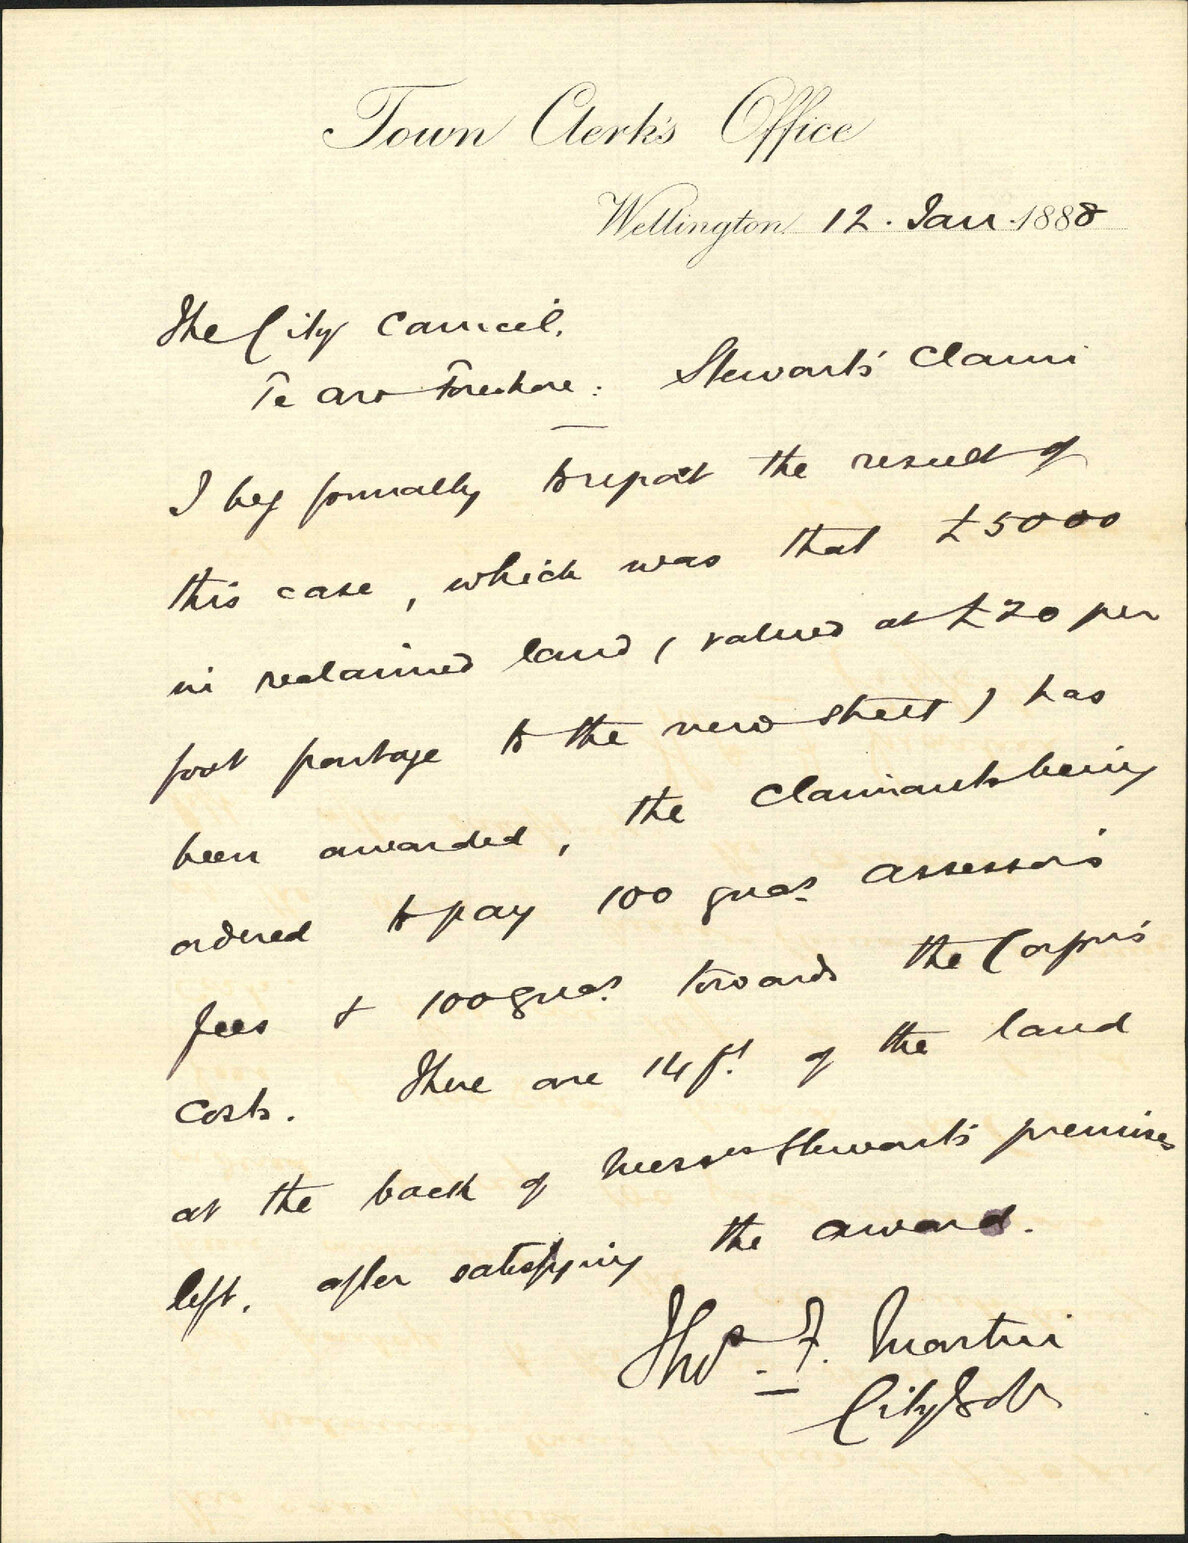 Town Clerk's Office
Wellington 12. Jan. 1888
The City Council.
Te Aro Foreshore: Stewart's Claim
I beg formally to report the result of
this case, which was that £5000
in reclaimed land (valued at £20 per
foot frontage to the new street) has
been awarded, the Claimants being
ordered to pay 100 gnas. assessor's
fees & 100 gnas. towards the Corpn's
costs. There are 14 ft. of the land
at the back of Messrs Stewart's premises
left, after satisfying the award.
Thos. F. Martin
City Solr